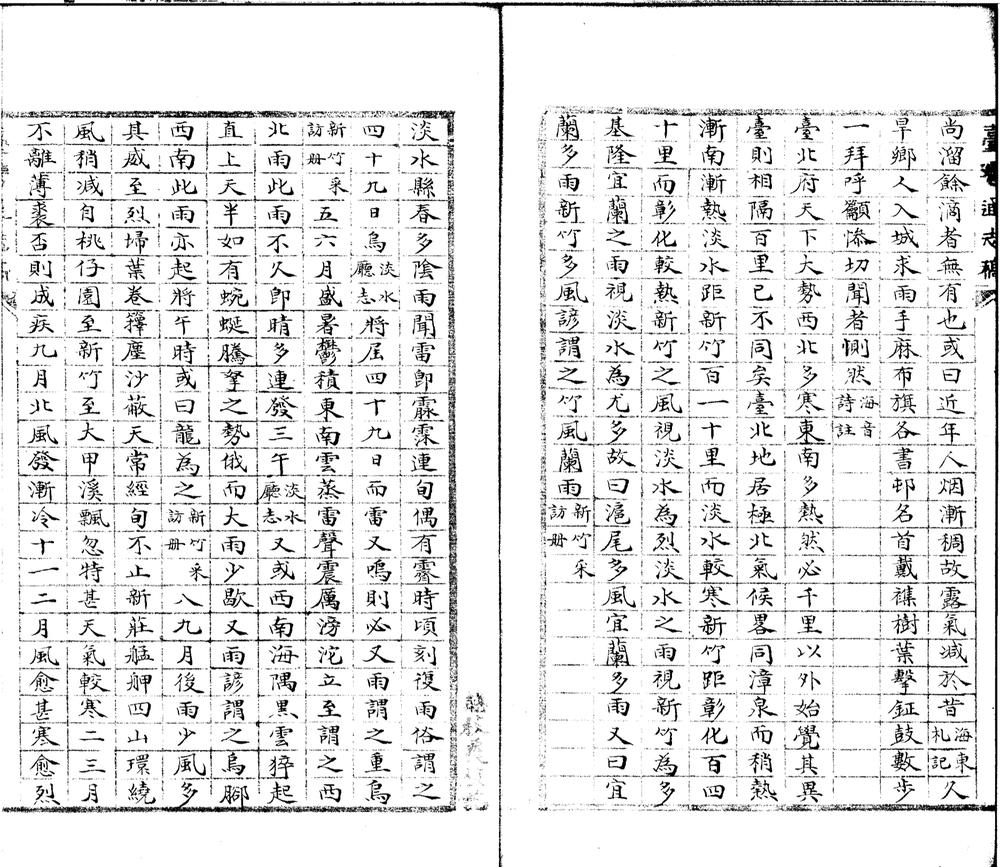 臺灣通志稿
尚溜餘滴者無有也或曰近年人烟漸稠故露氣減於昔海東札記久
旱鄉人入城求雨手麻布旗各書邨名首戴襍樹葉擊鉦鼓數步
一拜呼籲慘切聞者惻然海音詩註
臺北府天下大勢西北多寒東南多熱然必千里以外始覺其異
臺則相隔百里已不同矣臺北地居極北氣候畧同漳泉而稍熱
漸南漸熱淡水距新竹百一十里而淡水較寒新竹距彰化百四
十里而彰化較熱新竹之風視淡水為烈淡水之雨視新竹為多
基隆宜蘭之雨視淡水為尤多故曰滬尾多風宜蘭多雨又曰宜
蘭多雨新竹多風諺謂之竹風蘭雨新竹采訪冊
淡水縣春多陰雨聞雷即霡霂連旬偶有霽時頃刻復雨俗謂之
四十九日烏淡水廳志將屆四十九日而雷又鳴則必又雨謂之重烏
新竹采訪冊五六月盛暑鬱積東南雲蒸雷聲震厲滂沱立至謂之西
北雨此雨不久即晴多連發三午淡水廳志又或西南海隅黑雲猝起
直上天半如有蜿蜒騰拏之勢俄而大雨少歇又雨諺謂之烏腳
西南此雨亦起將午時或曰龍為之新竹采訪冊八九月後雨少風多
其威至烈埽葉卷籜塵沙蔽天常經旬不止新莊艋舺四山環繞
風稍減自桃仔園至新竹至大甲溪飄忽特甚天氣較寒二三月
不離薄裘否則成疾九月北風發漸冷十一二月風愈甚寒愈烈